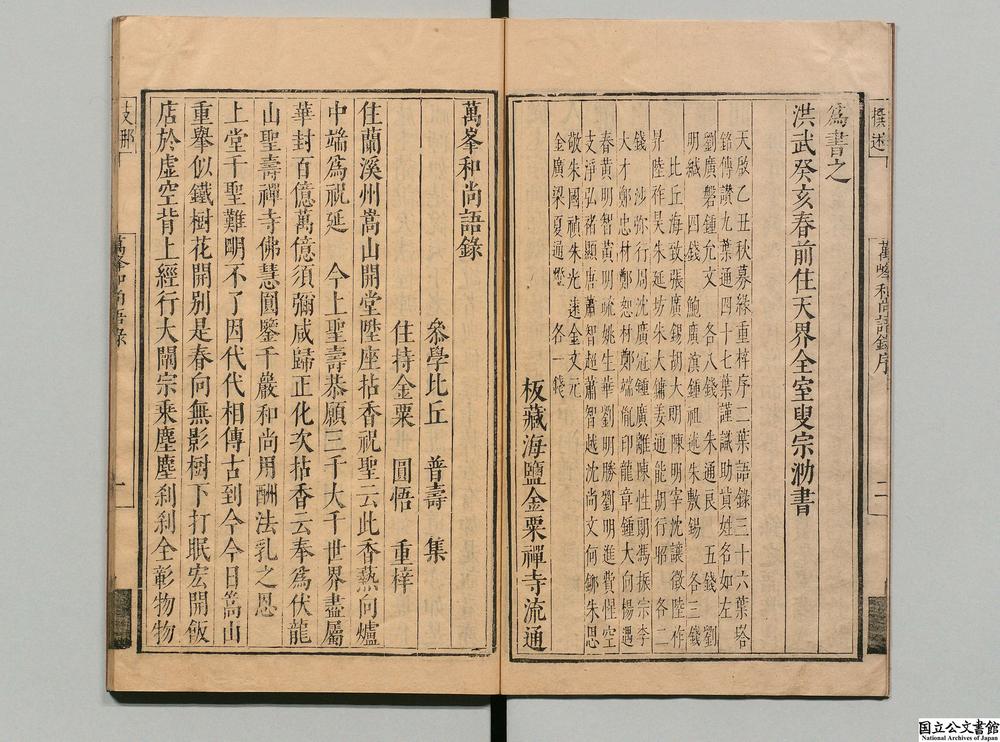 撰述
萬峰和尚語錄序
二
爲書之
洪武癸亥春前住天界全室叟宗泐書
天啟乙丑秋募緣重梓序二葉語錄三十六葉塔
銘傳讚九葉通四十七葉謹識助貲姓名如左
劉廣磬鍾允文　各八錢　朱通艮　五錢　劉
明緘　四錢　鮑廣滇鍾祖述朱敷錫　各三錢
比丘海致張廣錫胡大朗陳明宰沈讓徵陸作
昇陸祚昊朱延坊朱大鏞姜通能胡行昭　各二
錢　沙弥行周沈廣冠鍾廣離陳性朗馮振宗李
大才鄭忠材鄭恕材鄭端胤印龍章鍾大向楊遇
春黃明智黃明疏姚生華劉明勝劉明進費惺空
支淨弘褚顯唐蕭智超蕭智越沈尚文何鄉朱思
敬朱國禎朱光遠金文元
金廣梁夏通鑒　各一錢
板藏海鹽金粟禪寺流通
萬峯和尚語錄
參學比丘　普壽　集
住持金粟　圓悟　重梓
住蘭溪州嵩山開堂陞座拈香祝聖云此香爇向爐
中端爲祝延　今上聖壽恭願三千大千世界盡屬
華封百億萬億須彌咸歸正化次拈香云奉爲伏龍
山聖壽禪寺佛慧圓鑒千巖和尚用酬法乳之恩
上堂千聖難明不了因代代相傳古到今今日嵩山
重舉似鐵樹花開別是春向無影樹下打眠宏開飯
店於虛空背上經行大闡宗乘塵塵刹刹全彰物物
支那
萬峯和尚語錄
一
国立公文書館
National Archives of Japan